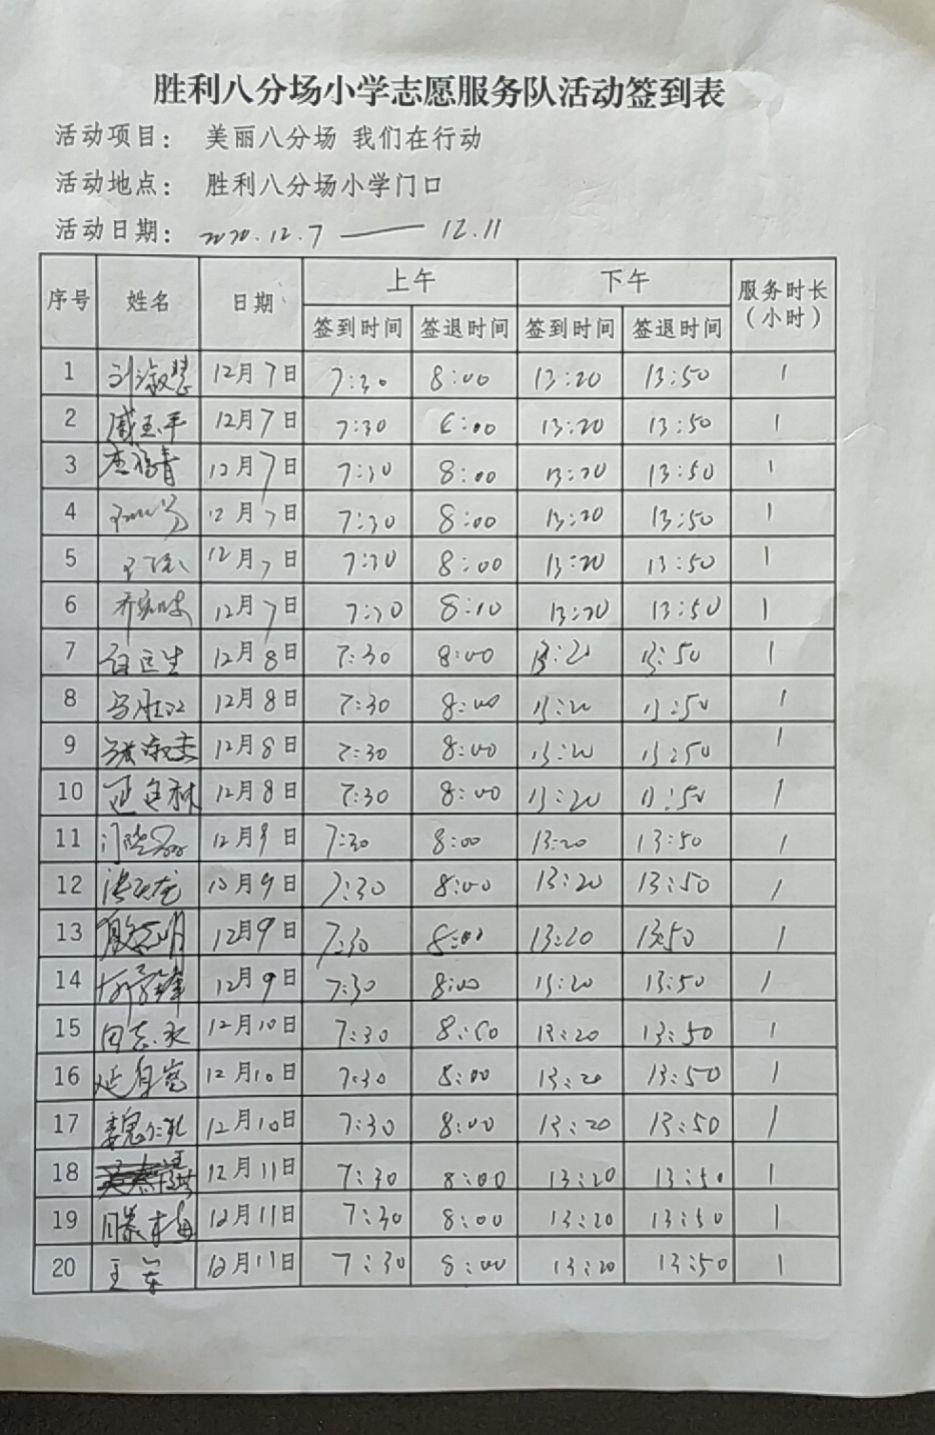 胜利八分场小学志愿服务队活动签到表
活动项目： 美丽八分场 我们在行动
活动地点： 胜利八分场小学门口
活动日期： 2020.12.7 —— 12.11
序号 姓名 日期 上午 下午 服务时长（小时）
签到时间 签退时间 签到时间 签退时间
1 刘淑慧 12月7日 7:30 8:00 13:20 13:50 1
2 戚玉平 12月7日 7:30 8:00 13:20 13:50 1
3 12月7日 7:30 8:00 13:20 13:50 1
4 12月7日 7:30 8:00 13:20 13:50 1
5 12月7日 7:30 8:00 13:20 13:50 1
6 12月7日 7:30 8:00 13:20 13:50 1
7 12月8日 7:30 8:00 13:20 13:50 1
8 12月8日 7:30 8:00 13:20 13:50 1
9 12月8日 7:30 8:00 13:20 13:50 1
10 12月8日 7:30 8:00 13:20 13:50 1
11 12月9日 7:30 8:00 13:20 13:50 1
12 12月9日 7:30 8:00 13:20 13:50 1
13 12月9日 7:30 8:00 13:20 13:50 1
14 12月9日 7:30 8:00 13:20 13:50 1
15 田志永 12月10日 7:30 8:00 13:20 13:50 1
16 12月10日 7:30 8:00 13:20 13:50 1
17 魏仁礼 12月10日 7:30 8:00 13:20 13:50 1
18 12月11日 7:30 8:00 13:20 13:50 1
19 12月11日 7:30 8:00 13:20 13:50 1
20 王军 12月11日 7:30 8:00 13:20 13:50 1